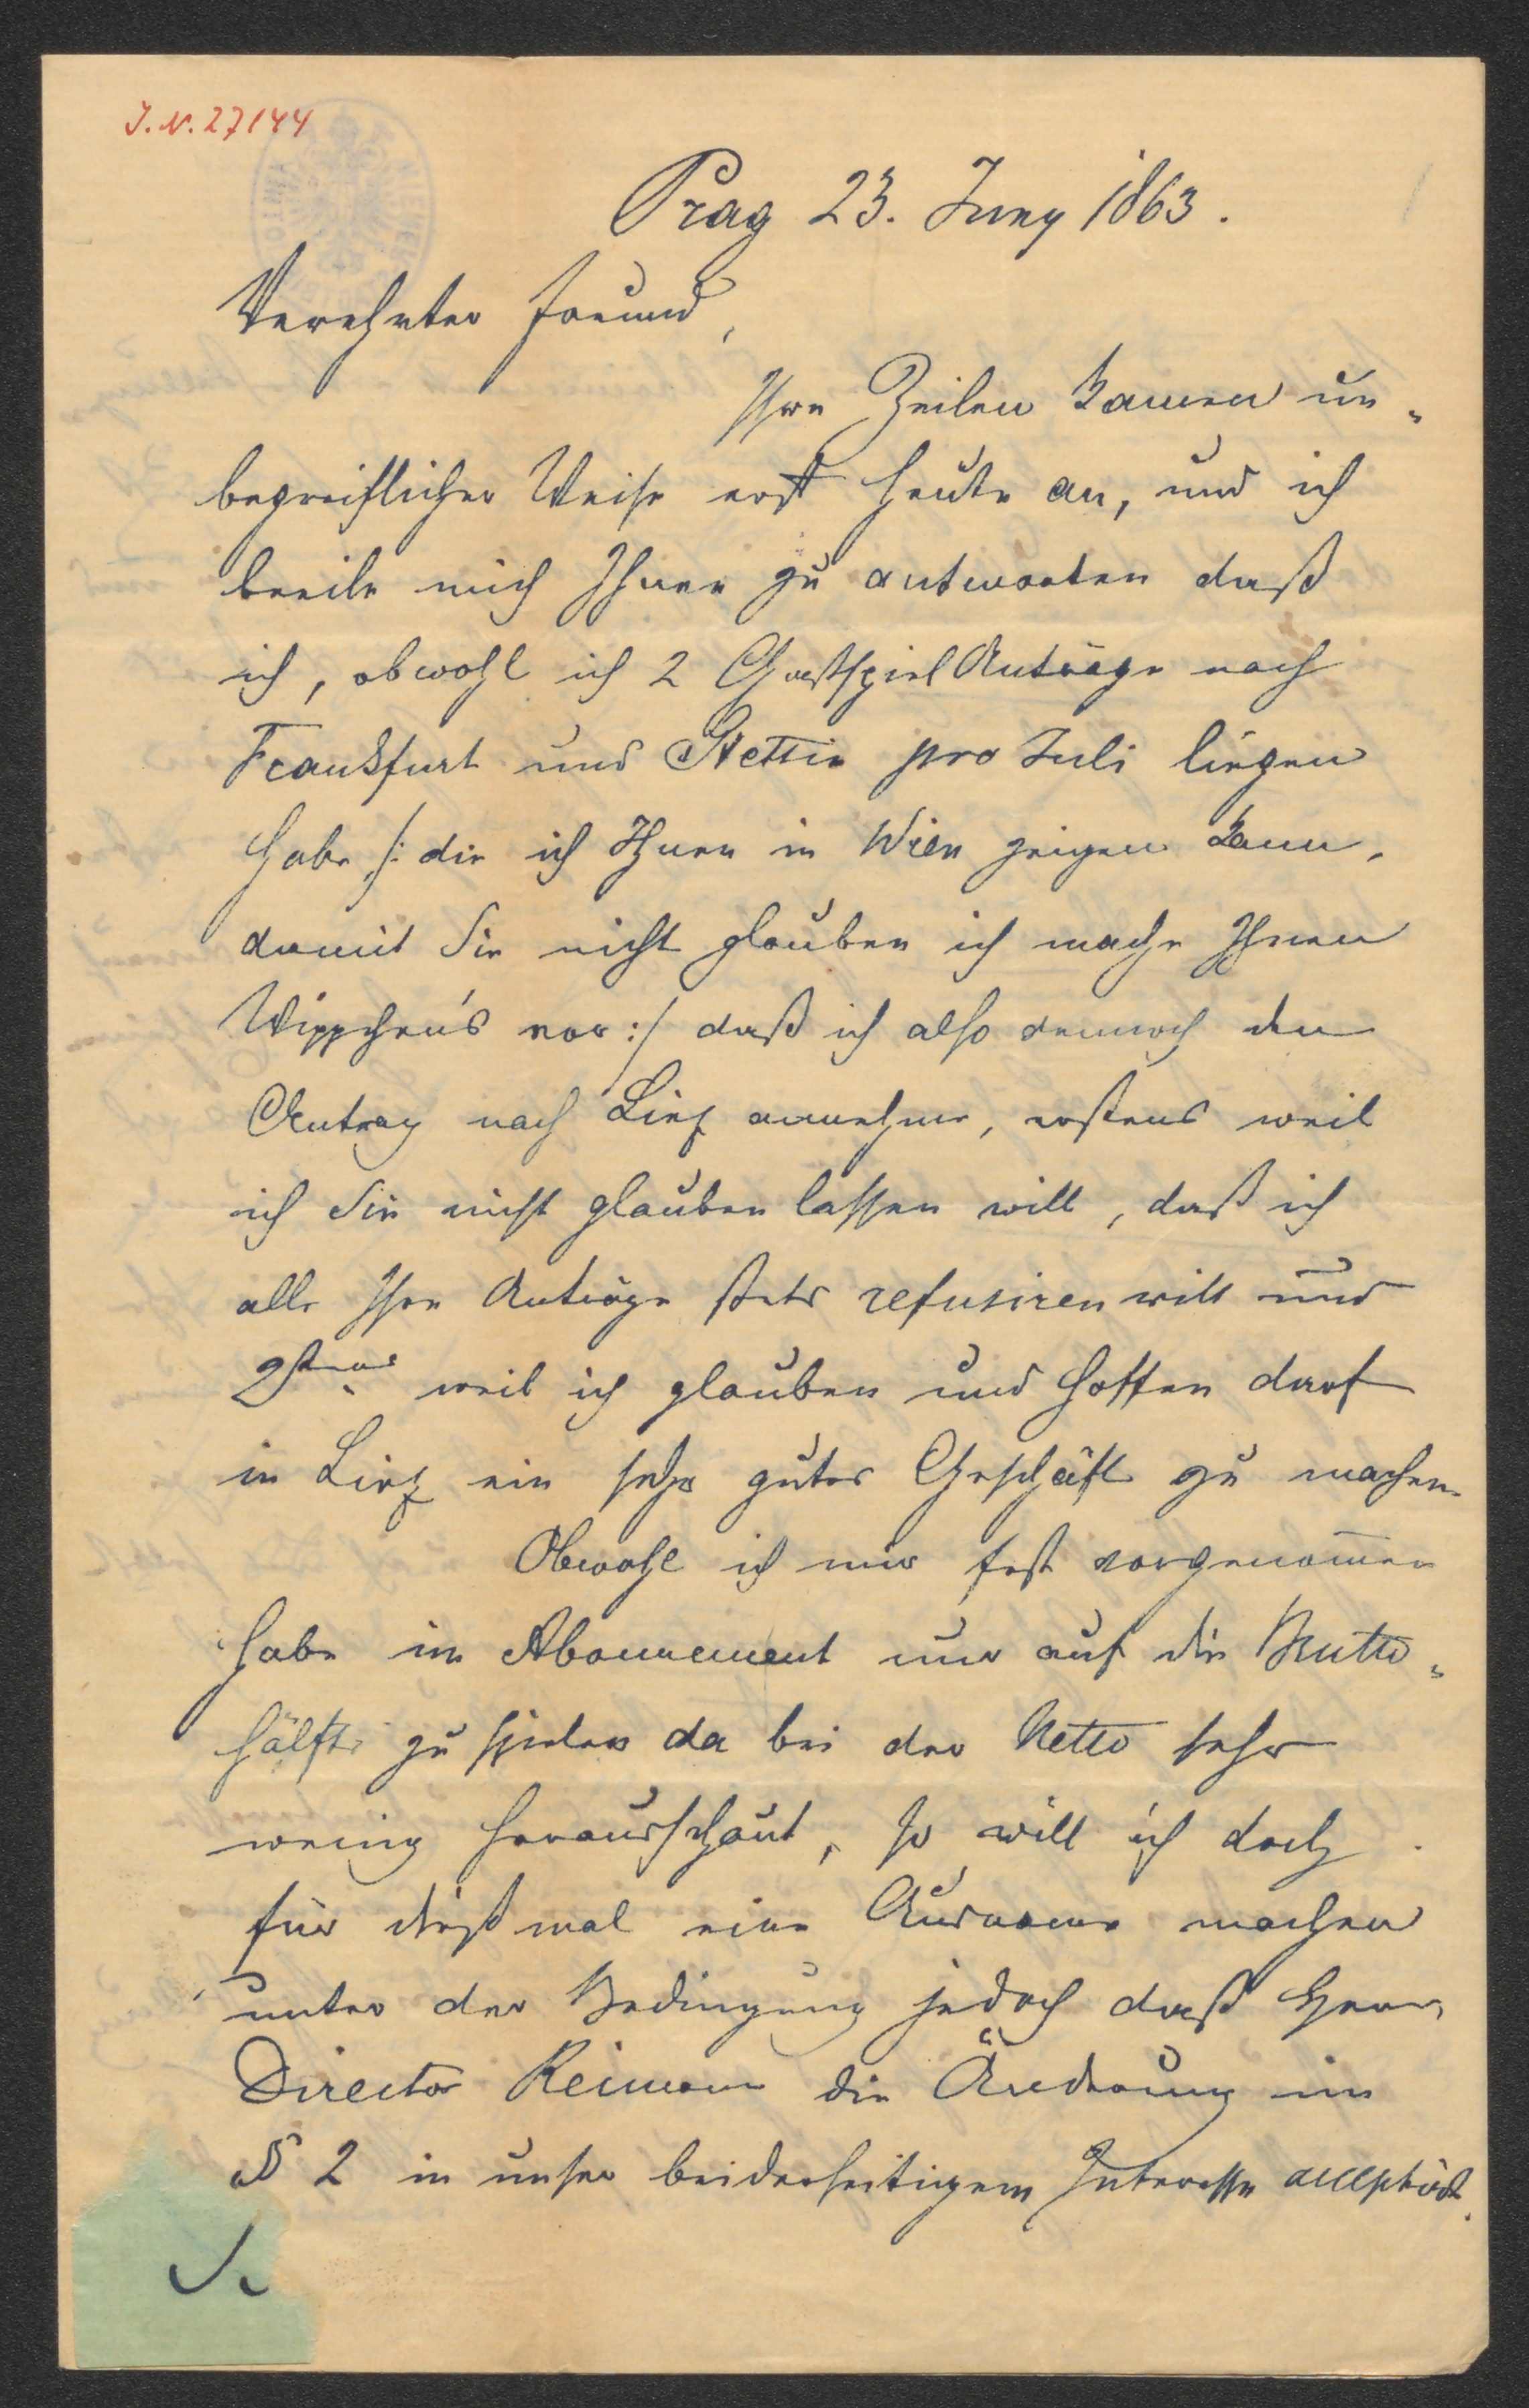 J.N. 27144
Prag 23. Juny 1863.
Verehrter Freund,
Ihre Zeilen kamen un„
begreiflicher Weise erst heute an, und ich
beeile mich Ihnen zu antworten daß
ich, obwohl ich 2 Gastspiel Anträge nach
Frankfurt und Stettin pro Juli liegen
habe /: die ich Ihnen in Wien zeigen kann,
damit Sie nicht glauben ich mache Ihnen
Wippchen's vor :/ daß ich also dennoch den
Antrag nach Linz annehme, erstens weil
ich Sie nicht glauben lassen will, daß ich
alle Ihre Anträge stets refusiren will und
2tens weil ich glauben und hoffen darf
in Linz ein sehr gutes Geschäft zu machen.
Obwohl ich mir fest vorgenom̅en
habe im Abonnement nur auf die Brutto„
hälfte zu spielen da bei der Netto sehr
wenig herausschaut, so will ich doch
für dießmal eine Ausname machen
unter der Bedingung jedoch daß Herr
Director Reimann die Änderung im
§ 2 in unser beiderseitigem Interesse acceptirt.